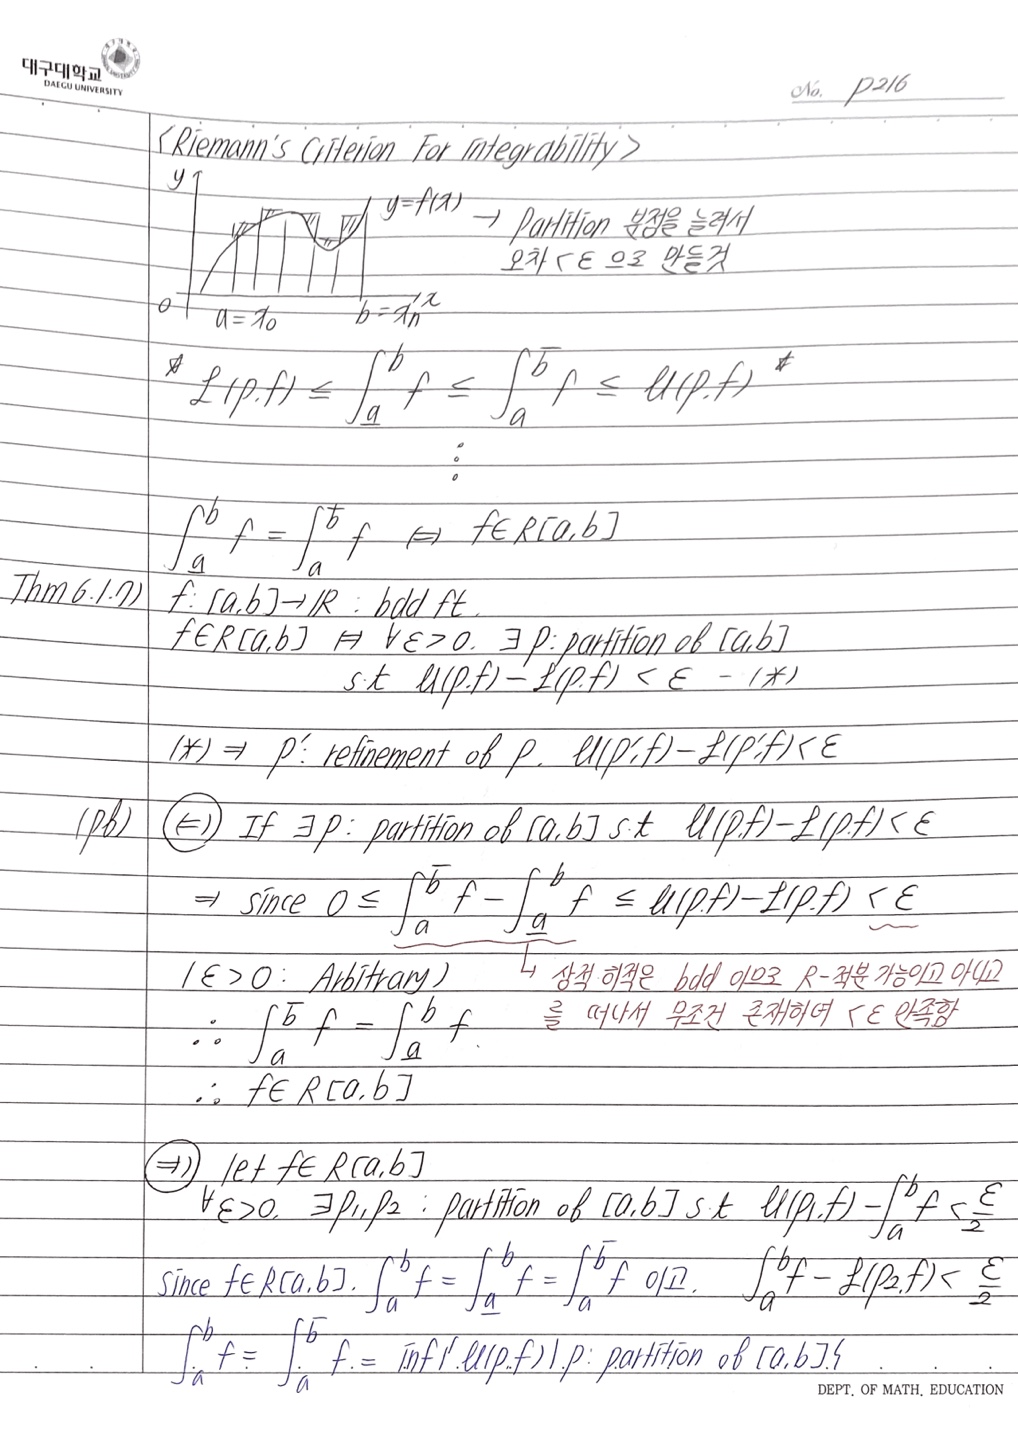 대구대학교
DAEGU UNIVERSITY
No. P216
<Riemann's Criterion For Integrability>
y
y=f(x) → Partition 분점을 늘려서
오차 < ε 으로 만들것
0 a=x₀ b=xₙ x
* L(p.f) ≤ ∫_a̲^b f ≤ ∫_a^b̅ f ≤ U(p.f) *
⋮
∫_a̲^b f = ∫_a^b̅ f ⇔ f∈R[a,b]
Thm 6.1.7) f: [a,b]→ℝ : bdd ft.
f∈R[a,b] ⇔ ∀ε>0. ∃p: partition of [a,b]
s.t U(p.f) - L(p.f) < ε - (*)
(*) ⇒ p′: refinement of p. U(p′,f) - L(p′,f) < ε
(pb) ⇐) If ∃p: partition of [a,b] s.t U(p.f) - L(p.f) < ε
⇒ since 0 ≤ ∫_a^b̅ f - ∫_a̲^b f ≤ U(p.f) - L(p.f) < ε
(ε>0: Arbitrary) ↳ 상적 하적은 bdd 이므로 R-적분 가능이고 아니고
를 떠나서 무조건 존재하며 < ε 만족함
∴ ∫_a^b̅ f = ∫_a̲^b f.
∴ f∈R[a,b]
⇒) let f∈R[a,b]
∀ε>0. ∃p₁,p₂ : partition of [a,b] s.t U(p₁,f) - ∫_a^b f < ε/2
since f∈R[a,b]. ∫_a^b f = ∫_a̲^b f = ∫_a^b̅ f 이고. ∫_a^b f - L(p₂,f) < ε/2
∫_a^b f = ∫_a^b̅ f. = inf{U(p.f) | p: partition of [a,b]}
DEPT. OF MATH. EDUCATION